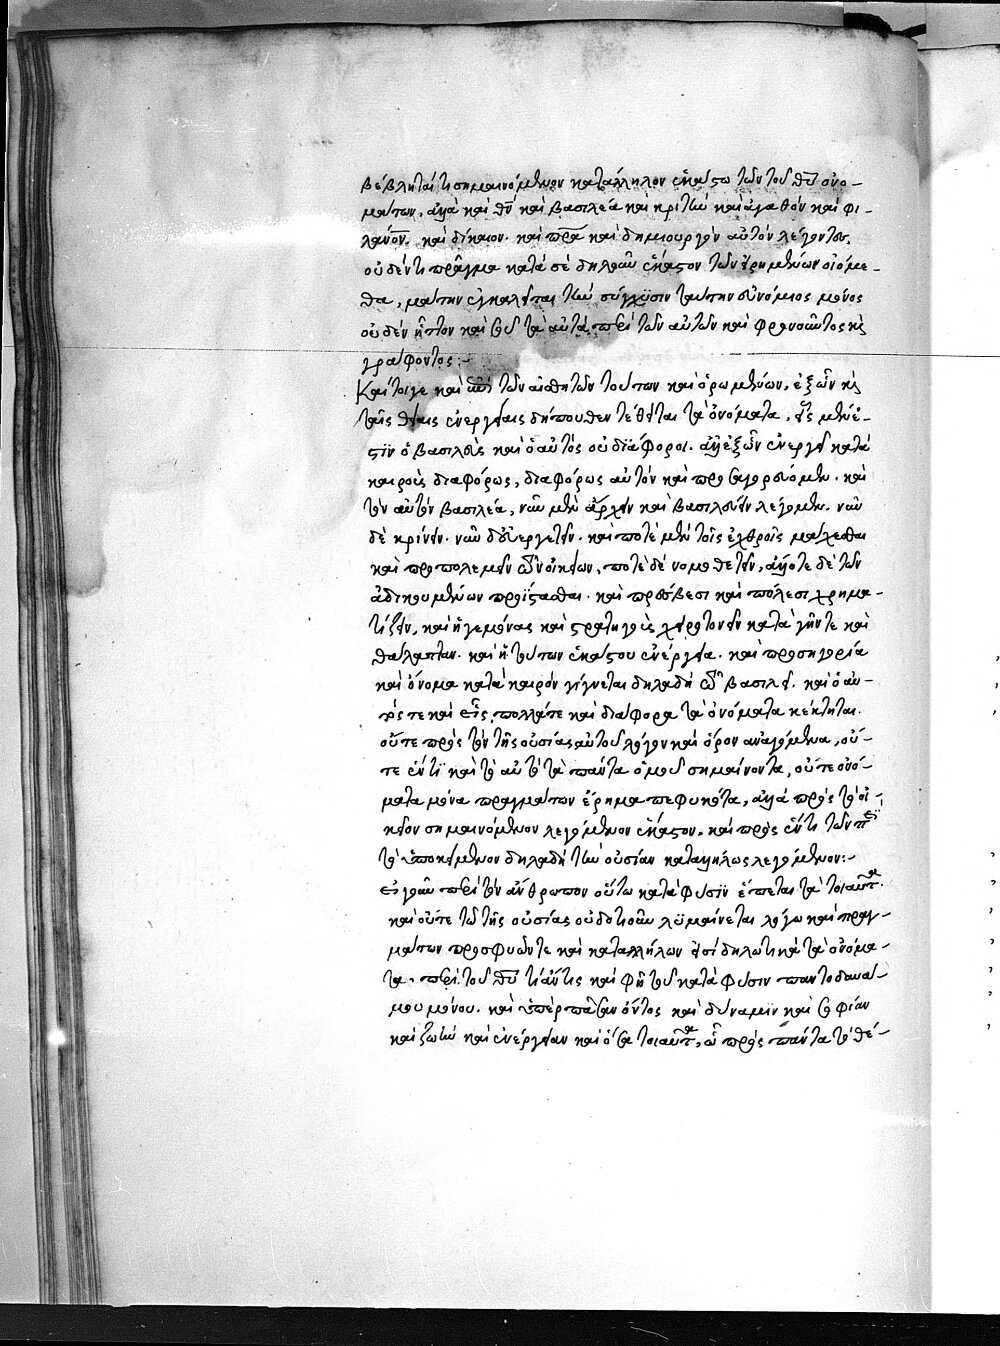 βέβληταί τι σημαινόμενον κατάλληλον ἑκάστω τῶν τοῦ θυ ὀνο-
μάτων, ἀλλὰ καὶ θν καὶ βασιλέα καὶ κριτὴν καὶ ἀγαθὸν καὶ φι-
λανον. καὶ δίκαιον. καὶ πρα καὶ δημιουργὸν αὐτὸν λέγοντες,
οὐδέν τι πρᾶγμα κατὰ σὲ δηλοῦν ἕκαστον τῶν εἰρημένων οἰόμε-
θα, μάτην ἐγκαλεῖται τὴν σύγχυσιν ταύτην εὐνόμιος μόνος
οὐδὲν ἧττον καὶ σοῦ τὰ αὐτὰ περὶ τῶν αὐτῶν καὶ φρονοῦντος κὶ
γράφοντος:-
Καίτοιγε καὶ ἐπὶ τῶν αἰσθητῶν τούτων καὶ ὁρωμένων, ἐξ ὧν κὶ
ταῖς θείαις ἐνεργείαις δήπουθεν τέθειται τὰ ὀνόματα, εἷς μέν ἐ-
στιν ὁ βασιλεὺς καὶ ὁ αὐτὸς οὐ διάφοροι. ἀλλ' ἐξ ὧν ἐνεργεῖ κατὰ
καιροὺς διαφόρως, διαφόρως αὐτὸν καὶ προσαγορεύομεν. καὶ
τὸν αὐτὸν βασιλέα, νῦν μὲν ἄρχειν καὶ βασιλεύειν λέγομεν. νῦν
δὲ κρίνειν. νῦν δ' εὐεργετεῖν. καὶ ποτὲ μὲν τοῖς ἐχθροῖς μάχεσθαι
καὶ προπολεμεῖν τῶν οἰκείων, ποτὲ δὲ νομοθετεῖν, ἄλλοτε δὲ τῶν
ἀδικουμένων προΐστασθαι. καὶ πρέσβεσι καὶ πόλεσι χρημα-
τίζειν, καὶ ἡγεμόνας καὶ στρατηγοὺς χειροτονεῖν κατὰ γῆν τε καὶ
θάλατταν. καὶ ἡ τούτων ἑκάστου ἐνέργεια. καὶ προσηγορία
καὶ ὄνομα κατὰ καιρὸν γίγνεται δηλαδὴ τῶ βασιλεῖ. καὶ ὁ αὐ-
τός τε καὶ εἷς, πολλά τε καὶ διάφορα τὰ ὀνόματα κέκτηται.
οὔτε πρὸς τὸν τῆς οὐσίας αὐτοῦ λόγον καὶ ὅρον ἀναγόμενα, οὔ-
τε ἕν τι καὶ τὸ αὐτὸ τὰ πάντα ὁμοῦ σημαίνοντα, οὔτε ὀνό-
ματα μόνα πραγμάτων ἔρημα πεφυκότα, ἀλλὰ πρὸς τὸ οἰ-
κεῖον σημαινόμενον λεγόμενον ἕκαστον. καὶ πρὸς ἕν τι τῶν περὶ
τὸ ὑποκείμενον δηλαδὴ τὴν οὐσίαν καταλλήλως λεγόμενον:-
Εἰ γοῦν περὶ τὸν ἄνθρωπον οὕτω κατὰ φύσιν ἕπεται τὰ τοιαῦτα.
καὶ οὔτε τῶ τῆς οὐσίας οὐδοτιοῦν λυμαίνεται λόγω καὶ πραγ-
μάτων προσφυῶν τε καὶ καταλλήλων εἰσὶ δηλωτικὰ τὰ ὀνόμα-
τα. περὶ τοῦ θυ τί ἄν τις καὶ φῆ τοῦ κατὰ φύσιν παντοδυνά-
μου μόνου. καὶ ὑπὲρ πᾶσαν ὄντος καὶ δύναμιν καὶ σοφίαν
καὶ ζωὴν καὶ ἐνέργειαν καὶ ὅσα τοιαῦτα, ὧ πρὸς πάντα τὸ θέ-